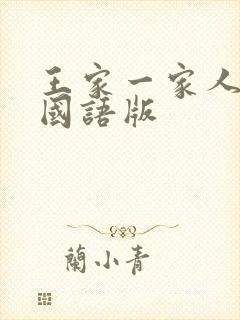 王家一家人
國語版
蘭小青